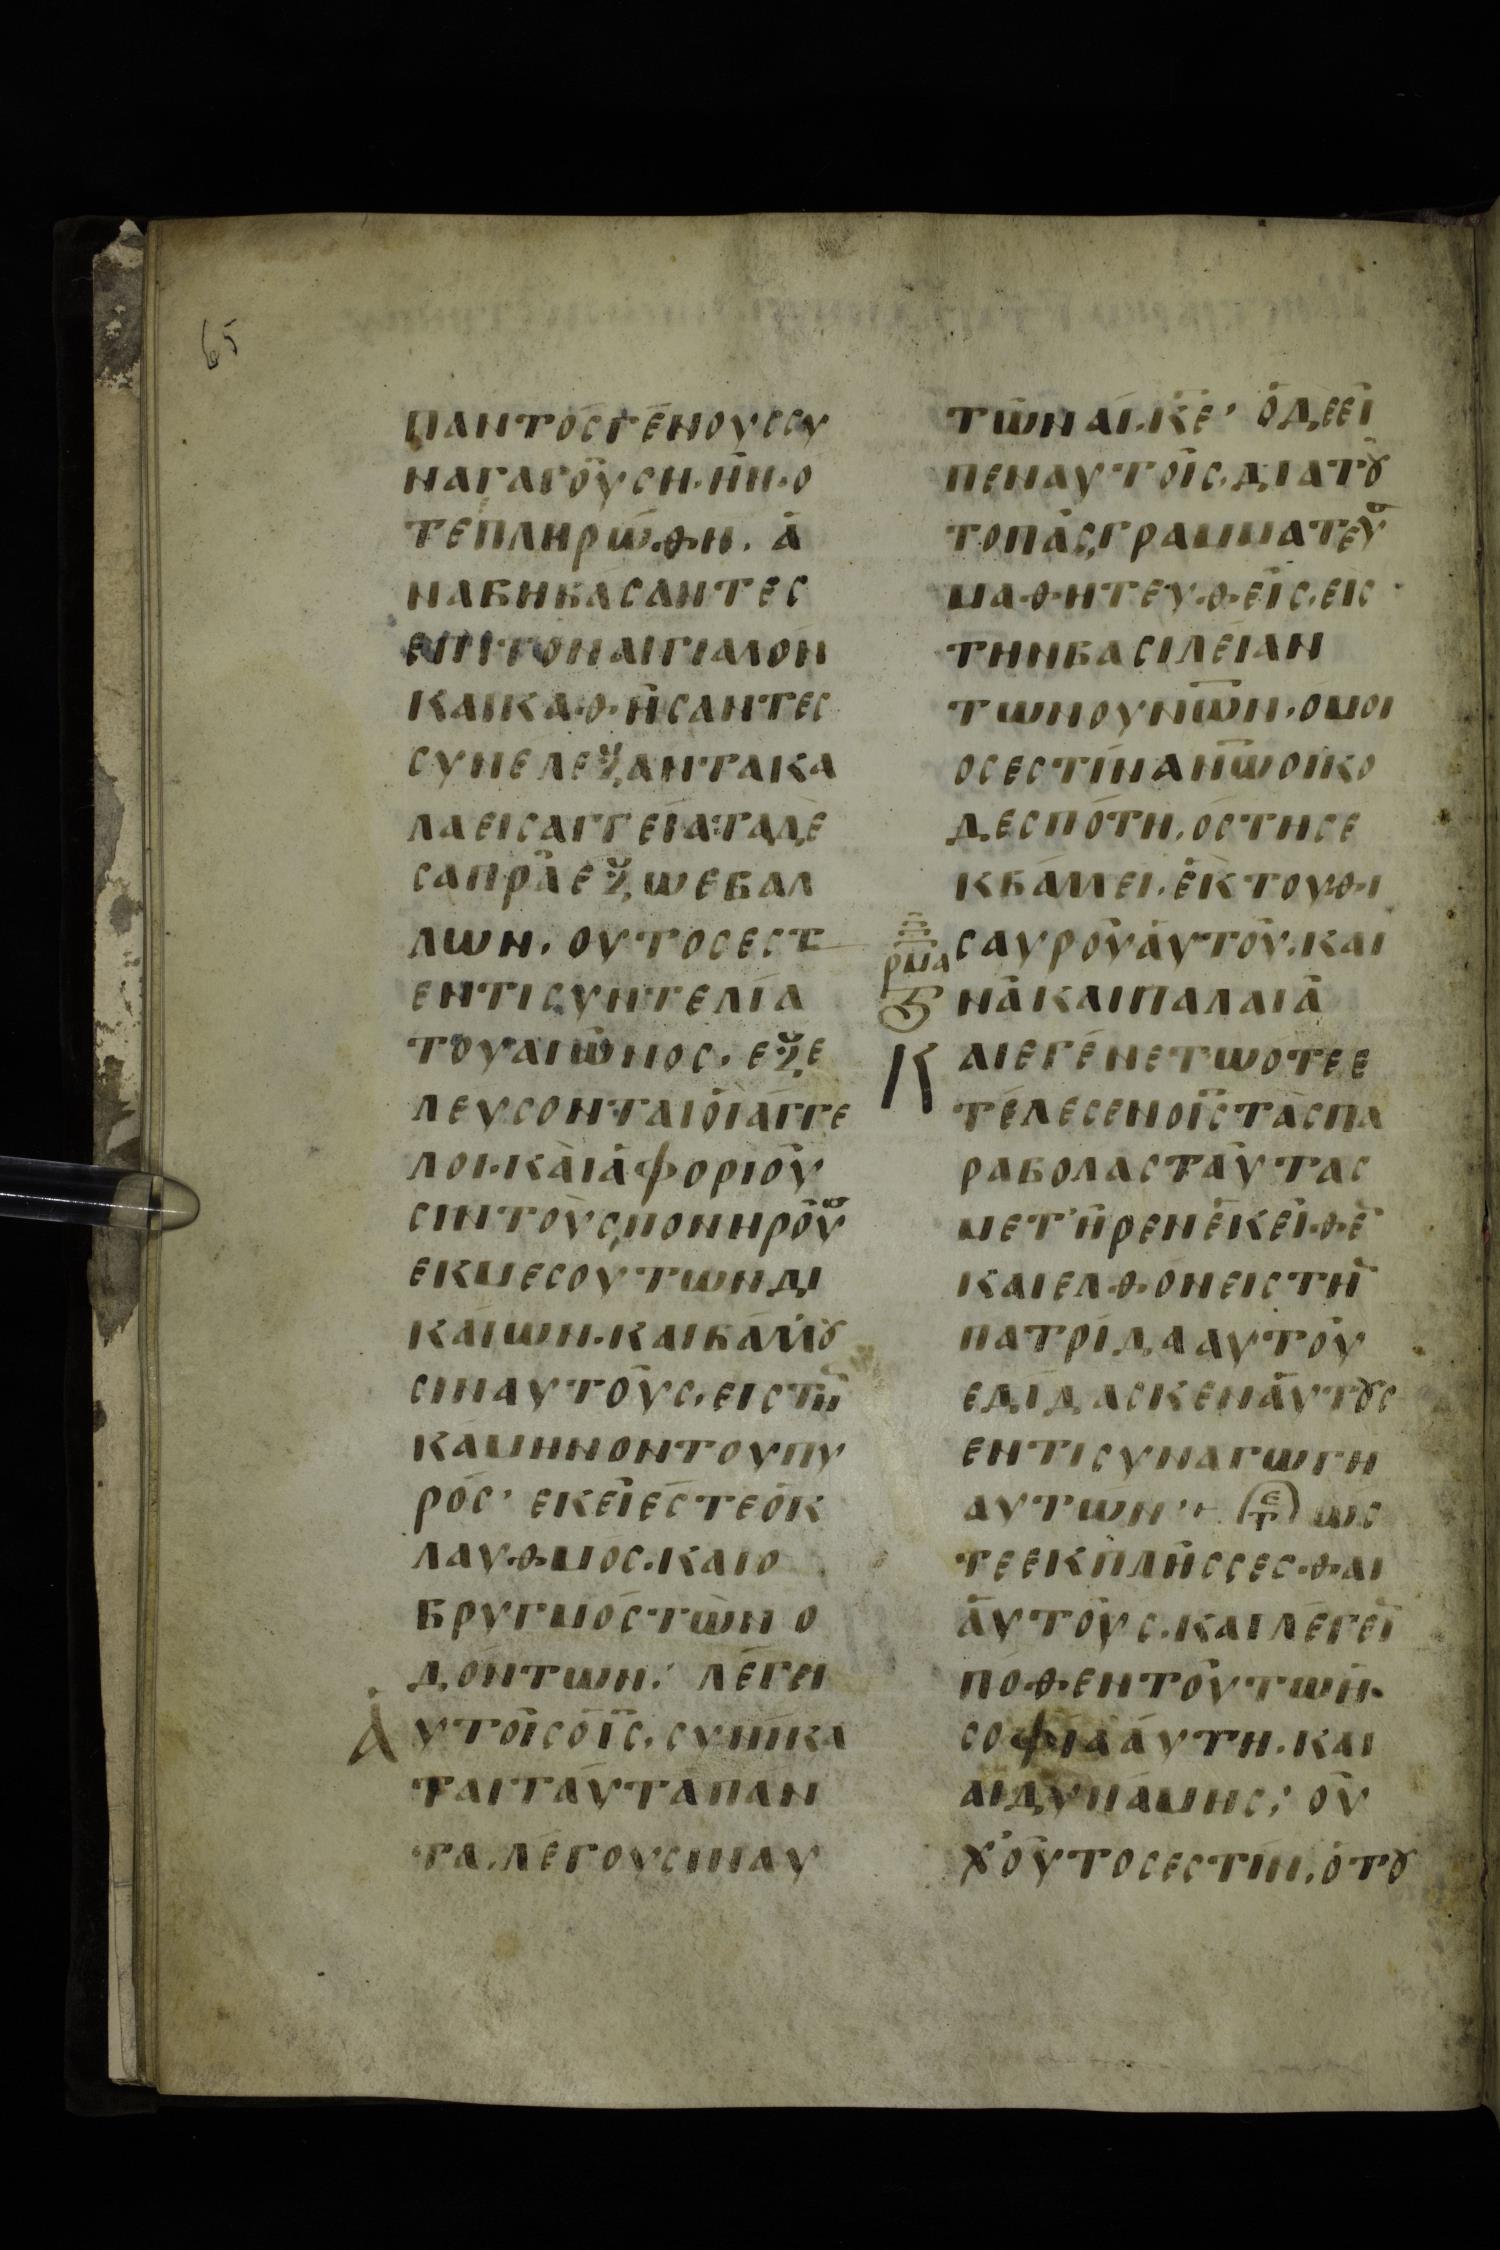 65
παντοσγενουσσυ
ναγαγουσν. ην. ο
τεπληρωθη. α
ναβηβασαντες
επιτοναιγιαλον
καικαθησαντες
συνελεξαντακα
λαεισαγγειαταδε
σαπραεξωεβαλ
λων. ουτοσεστ
εντισυντελια
τουαιωνος. εξε
λευσονταιοιαγγε
λοι. καιαφοριου
σιντουσπονηρου
εκμεσουτωνδι
καιων. καιβαλλου
σιναυτους. ειστη
καμηνοντουπυ
ρος· εκειεστεοκ
λαυθμος. καιο
βρυγμοστων ο
δοντων: λεγει
Αυτοισοις. συνηκα
ταιταυταπαν
τα. λεγουσιναυ
τωναι. κε· οδεει
πεναυτοις. διατου
τοπασγραμματευ
μαθητευθεις. εις
τηνβασιλειαν
τωνουνων. ομοι
οσεστινανωοικο
δεσποτη. οστησε
κβαλλει. εκτουθι
σαυρουαυτου. και
ρμα
νακαιπαλαια
Καιεγενετωοτεε
τελεσενοιστασπα
ραβολασταυτας
μετηρενεκειθε
καιελθονειστη
πατριδααυτου
εδιδασκεναυτους
εντισυναγωγη
αυτων·+ ως
τεεκπλησσεσθαι
αυτους. καιλεγει
ποθεντουτων.
σοφιααυτη. και
αιδυναμης; ου
χουτοσεστιν. οτου